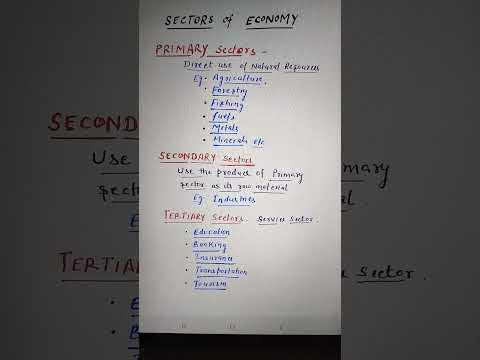 SECTORS of ECONOMY
PRIMARY Sectors -
Direct use of Natural Resources
Eg. • Agriculture,
• Forestry
• Fishing
• fuels
• Metals
• Minerals etc
SECONDARY Sectors
Use the product of Primary
sector as its raw material
Eg. Industries
TERTIARY Sectors. Service Sector.
• Education
• Banking
• Insurance
• Transportation
• Tourism
SECONDAR
Use th
sector
E
TERTIAR
ce Sector.
• E
• B